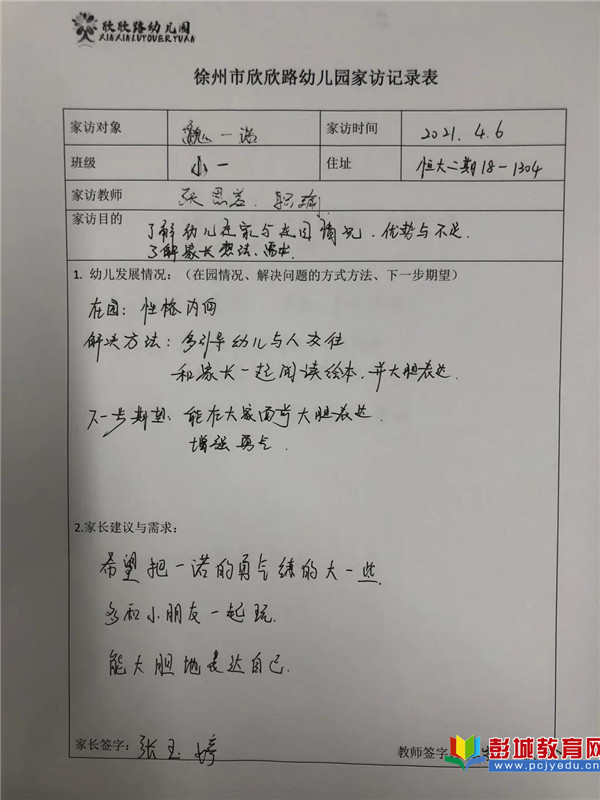 欣欣路幼儿园
XINXINLUYOUERYUAN
徐州市欣欣路幼儿园家访记录表
家访对象 魏一诺 家访时间 2021.4.6
班级 小一 住址 恒大二期18-1304
家访教师 张
家访目的 了解幼儿在家与在园情况.优势与不足.
了解家长想法、需求.
1. 幼儿发展情况：（在园情况、解决问题的方式方法、下一步期望）
在园：性格内向
解决方法：多引导幼儿与人交往
和家长一起阅读绘本，并大胆表达.
下一步期望：能在大家面前大胆表达.
增强勇气.
2.家长建议与需求：
希望把一诺的勇气练的大一些.
多和小朋友一起玩.
能大胆地表达自己.
家长签字：张玉婷 教师签字：
彭城教育网
www.pcjyedu.cn